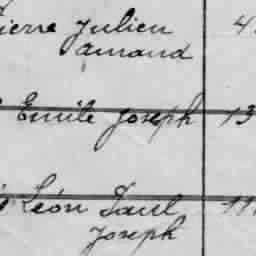 Pierre Julien 4
Amand
Emile Joseph 13
Léon Paul 11
Joseph